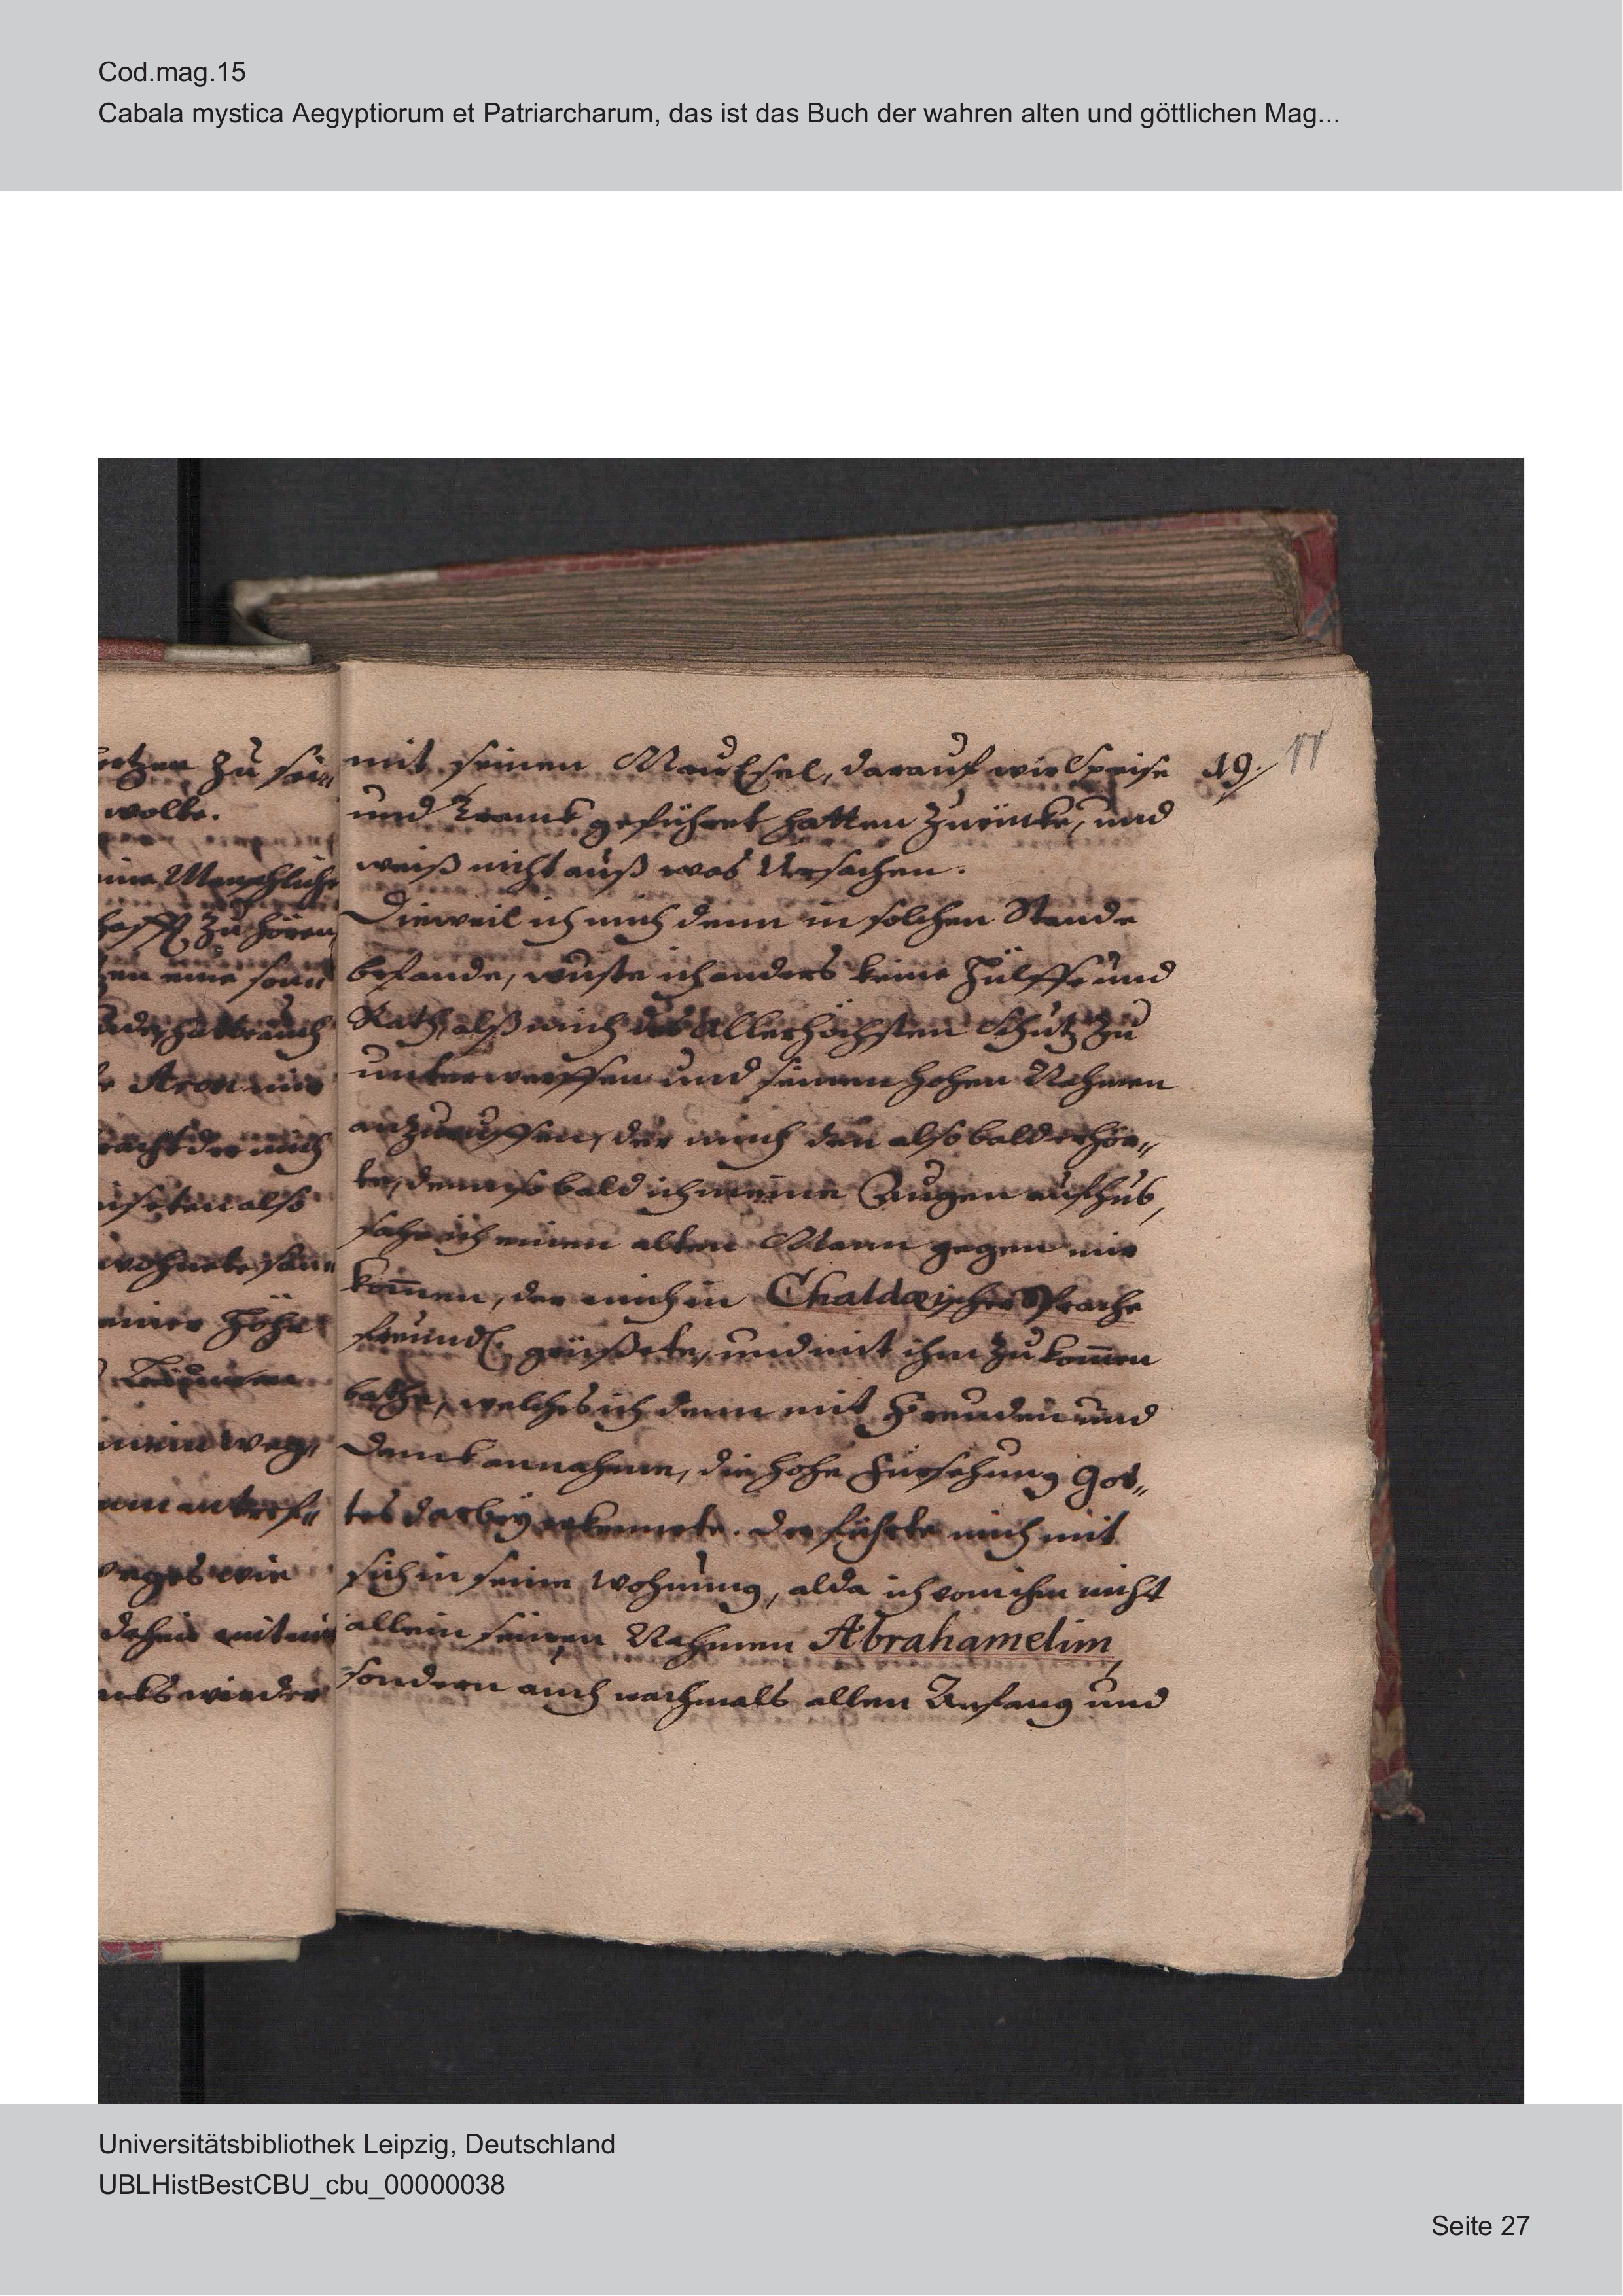 Cod.mag.15
Cabala mystica Aegyptiorum et Patriarcharum, das ist das Buch der wahren alten und göttlichen Mag...
19. 11
mit seinen MaulEsel, darauf wir Speise
und Tranck geführet hatten zurücke, und
weiß nicht auß was Ursachen.
Dieweil ich mich denn in solchen Stande
befande, wuste ich anders keine Hülffe und
Rath, alß mich des Allerhöchsten Schutz zu
unterwerffen und seinen hohen Nahmen
anzuruffen, der mich den also bald erhör„
te, denn so bald ich meine Augen aufhub,
sahe ich einen alten Mann gegen mir
kom̅en, der mich in Chaldæischer Sprache
freundl. grüßete, und mit ihm zu kom̅en
bathe, welches ich denn mit Freuden und
Danck annahme, die hohe Fürsehung Got„
tes darbey erkennete. Der führte mich mit
sich in seine Wohnung, alda ich von ihm nicht
allein seinen Nahmen Abrahamelim,
sondern auch nachmals allen Anfang und
zu sei„
wolte.
Menschliche
zu hören,
eine son„
hatte auch
Aron mir
der mich
also
wohnete
einer Höhe
mein weg,
antref„
wie
dahin mit
wieder
Universitätsbibliothek Leipzig, Deutschland
UBLHistBestCBU_cbu_00000038
Seite 27